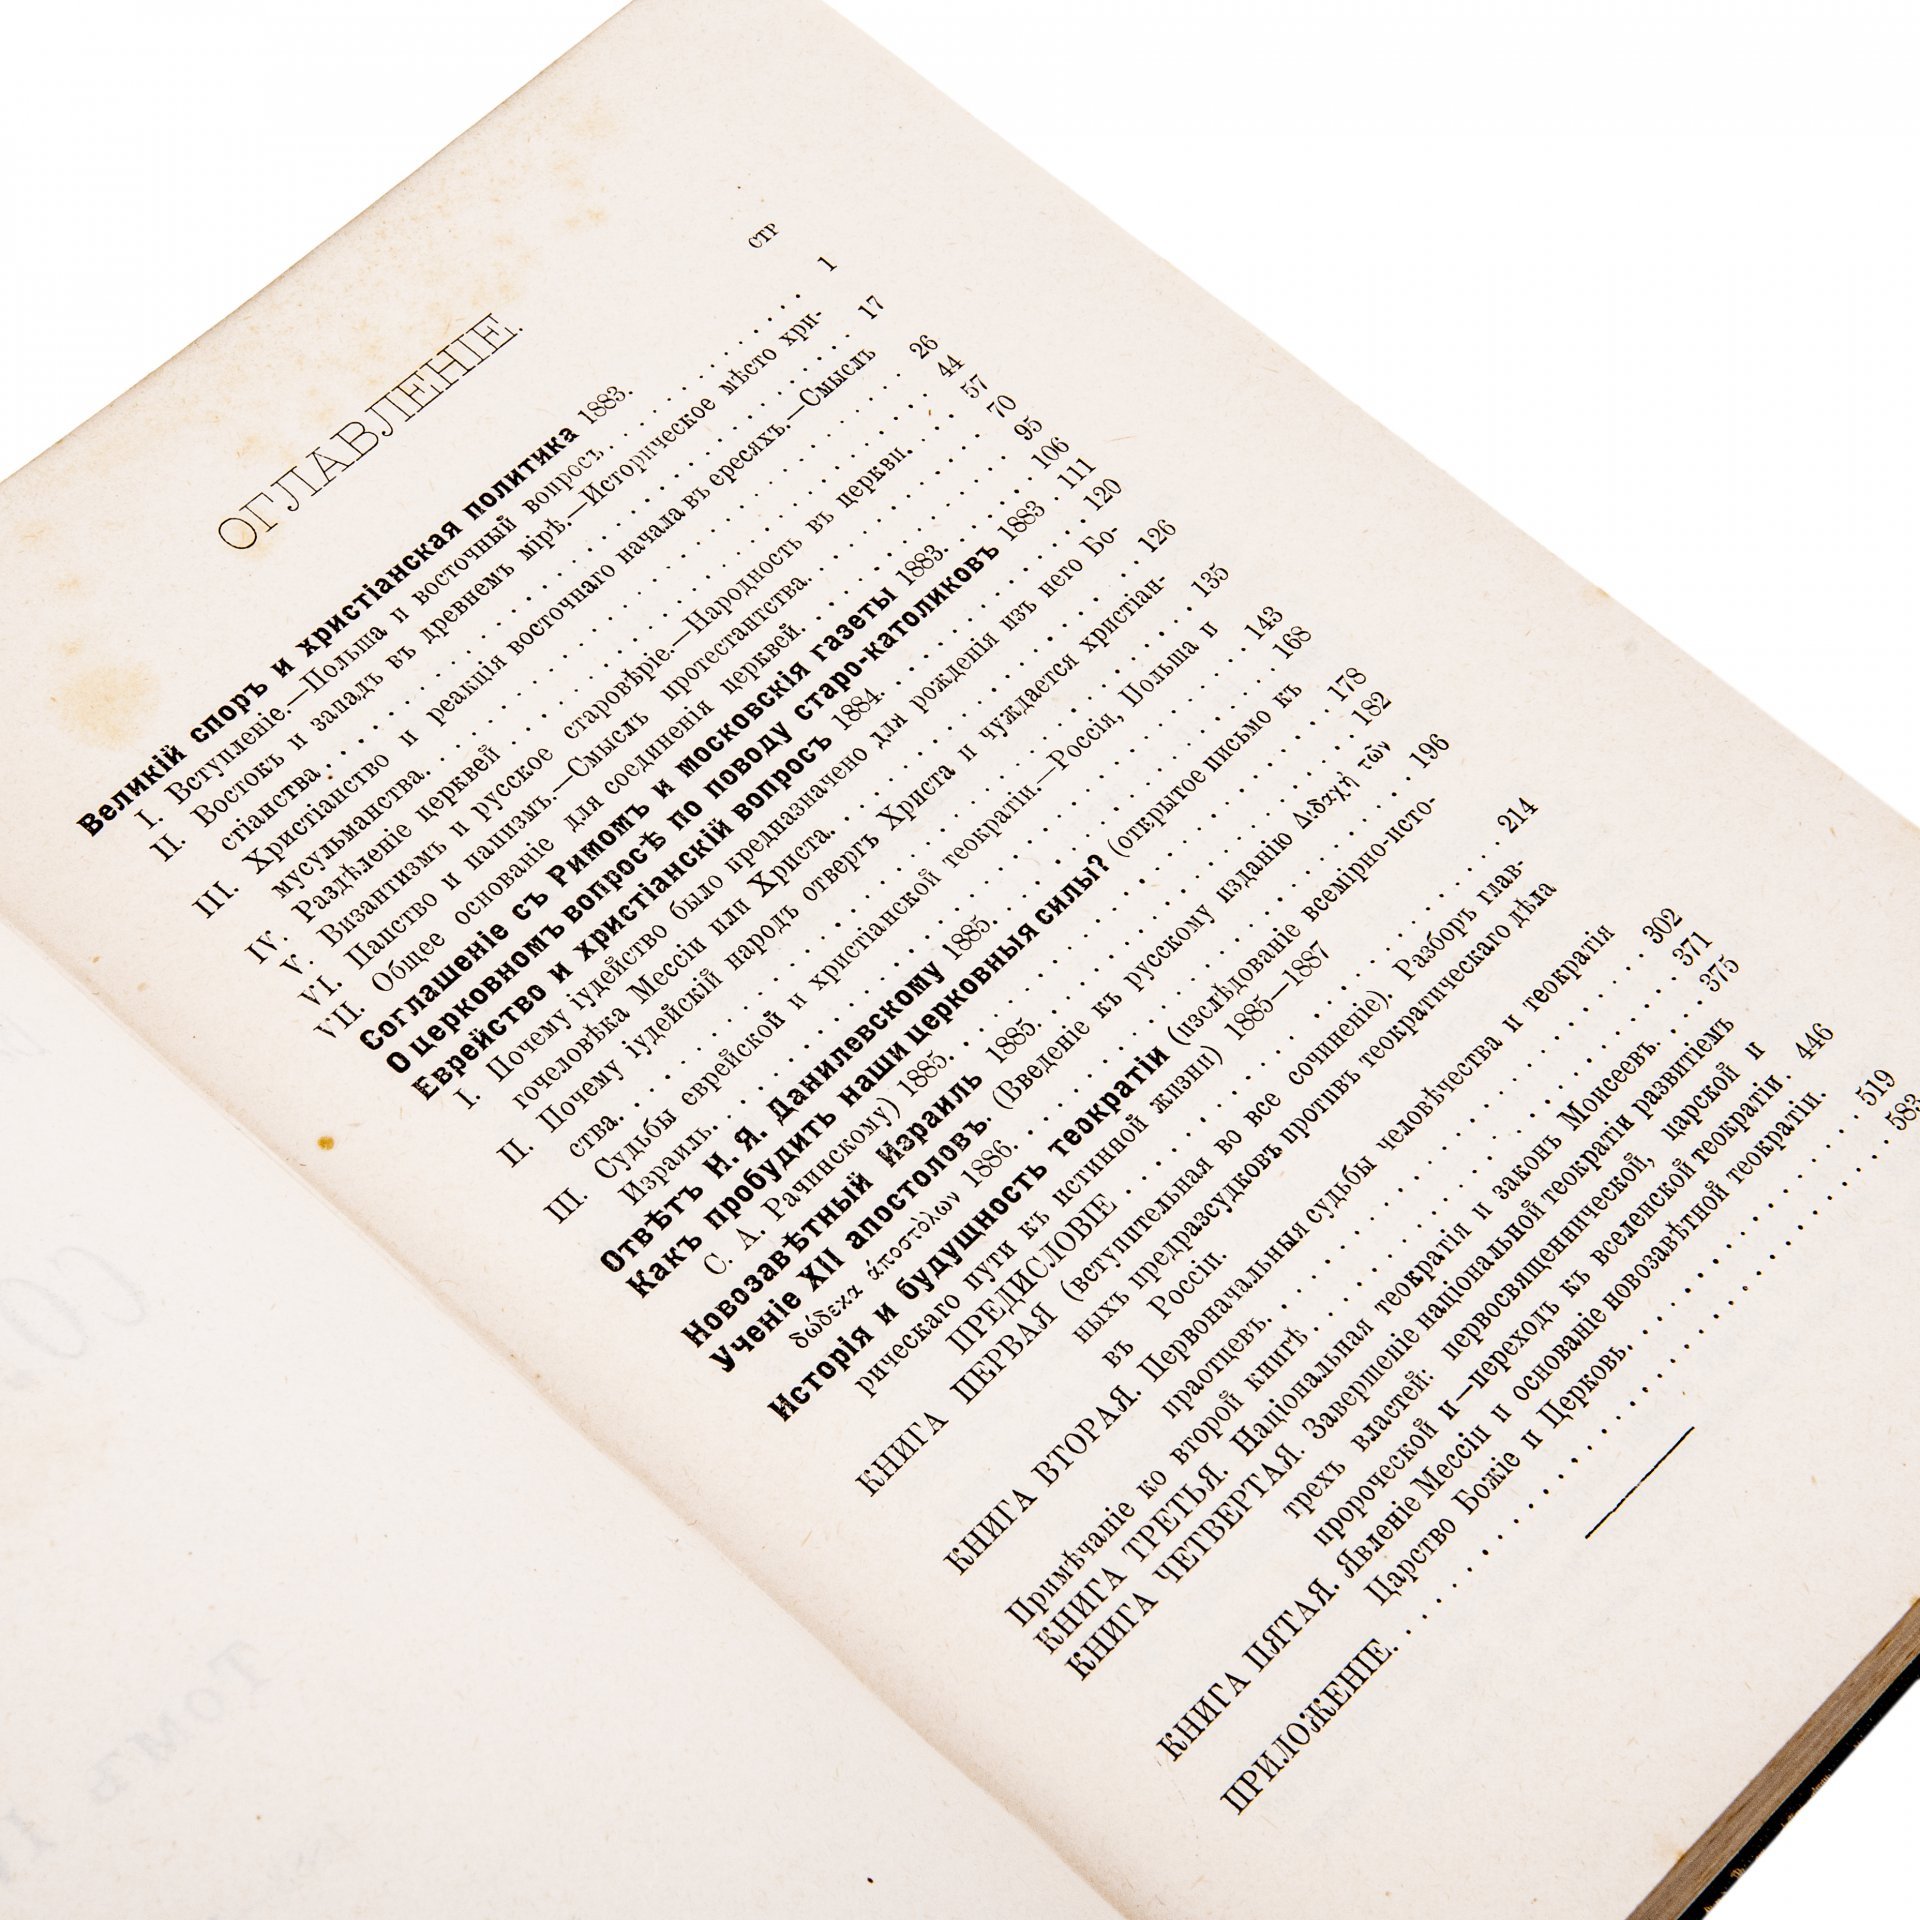 ОГЛАВЛЕНІЕ.
СТР
Великій споръ и христіанская политика 1883.
I. Вступленіе.—Польша и восточный вопросъ. . . . . . . . . . . 1
II. Востокъ и западъ въ древнемъ мірѣ.—Историческое мѣсто хри-
стіанства. . . . . . . . . . . 17
III. Христіанство и реакція восточнаго начала въ ересяхъ.—Смыслъ
мусульманства. . . . . . . . . . . 26
IV. Раздѣленіе церквей . . . . . . . . . . . 44
V. Византизмъ и русское старовѣріе.—Народность въ церкви. . . . 57
VI. Папство и папизмъ.—Смыслъ протестантства. . . . . . . . . . . 70
VII. Общее основаніе для соединенія церквей. . . . . . . . . . . 95
Соглашеніе съ Римомъ и московскія газеты 1883. . . . . . . . . 106
О церковномъ вопросѣ по поводу старо-католиковъ 1883 . 111
Еврейство и христіанскій вопросъ 1884. . . . . . . . . . . 120
I. Почему іудейство было предназначено для рожденія изъ него Бо-
гочеловѣка Мессіи или Христа. . . . . . . . . . . 126
II. Почему іудейскій народъ отвергъ Христа и чуждается христіан-
ства. . . . . . . . . . . 135
III. Судьбы еврейской и христіанской теократіи.—Россія, Польша и
Израиль. . . . . . . . . . . 143
Отвѣтъ Н. Я. Данилевскому 1885. . . . . . . . . . . 168
Какъ пробудить наши церковныя силы? (открытое письмо къ
С. А. Рачинскому) 1885. . . . . . . . . . . 178
Новозавѣтный Израиль 1885. . . . . . . . . . . 182
Ученіе XII апостоловъ. (Введеніе къ русскому изданію Διδαχὴ τῶν
δώδεκα ἀποστόλων 1886. . . . . . . . . . . 196
Исторія и будущность теократіи (изслѣдованіе всемірно-исто-
рическаго пути къ истинной жизни) 1885—1887
ПРЕДИСЛОВІЕ . . . . . . . . . . . 214
КНИГА ПЕРВАЯ (вступительная во все сочиненіе). Разборъ глав-
ныхъ предразсудковъ противъ теократическаго дѣла
въ Россіи.
КНИГА ВТОРАЯ. Первоначальныя судьбы человѣчества и теократія
праотцевъ. . . . . . . . . . . 302
Примѣчаніе ко второй книгѣ. . . . . . . . . . . 371
КНИГА ТРЕТЬЯ. Національная теократія и законъ Моисеевъ. . . . 375
КНИГА ЧЕТВЕРТАЯ. Завершеніе національной теократіи развитіемъ
трехъ властей: первосвященнической, царской и
пророческой и—переходъ къ вселенской теократіи. 446
КНИГА ПЯТАЯ. Явленіе Мессіи и основаніе новозавѣтной теократіи.
Царство Божіе и Церковь. . . . . . . . . . . 519
ПРИЛОЖЕНІЕ. . . . . . . . . . . 583